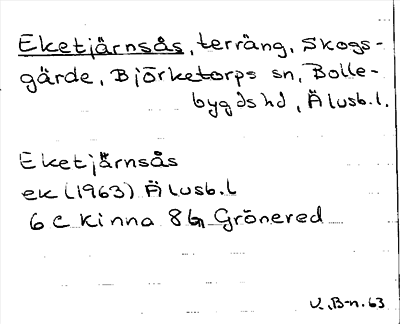 Eketjärnsås, terräng, Skogs-
gärde, Björketorps sn, Bolle-
bygds hd, Älvsb.l.
Eketjärnsås
ek (1963) Älvsb.l
6 C Kinna 8 g Grönered
V.B-n. 63